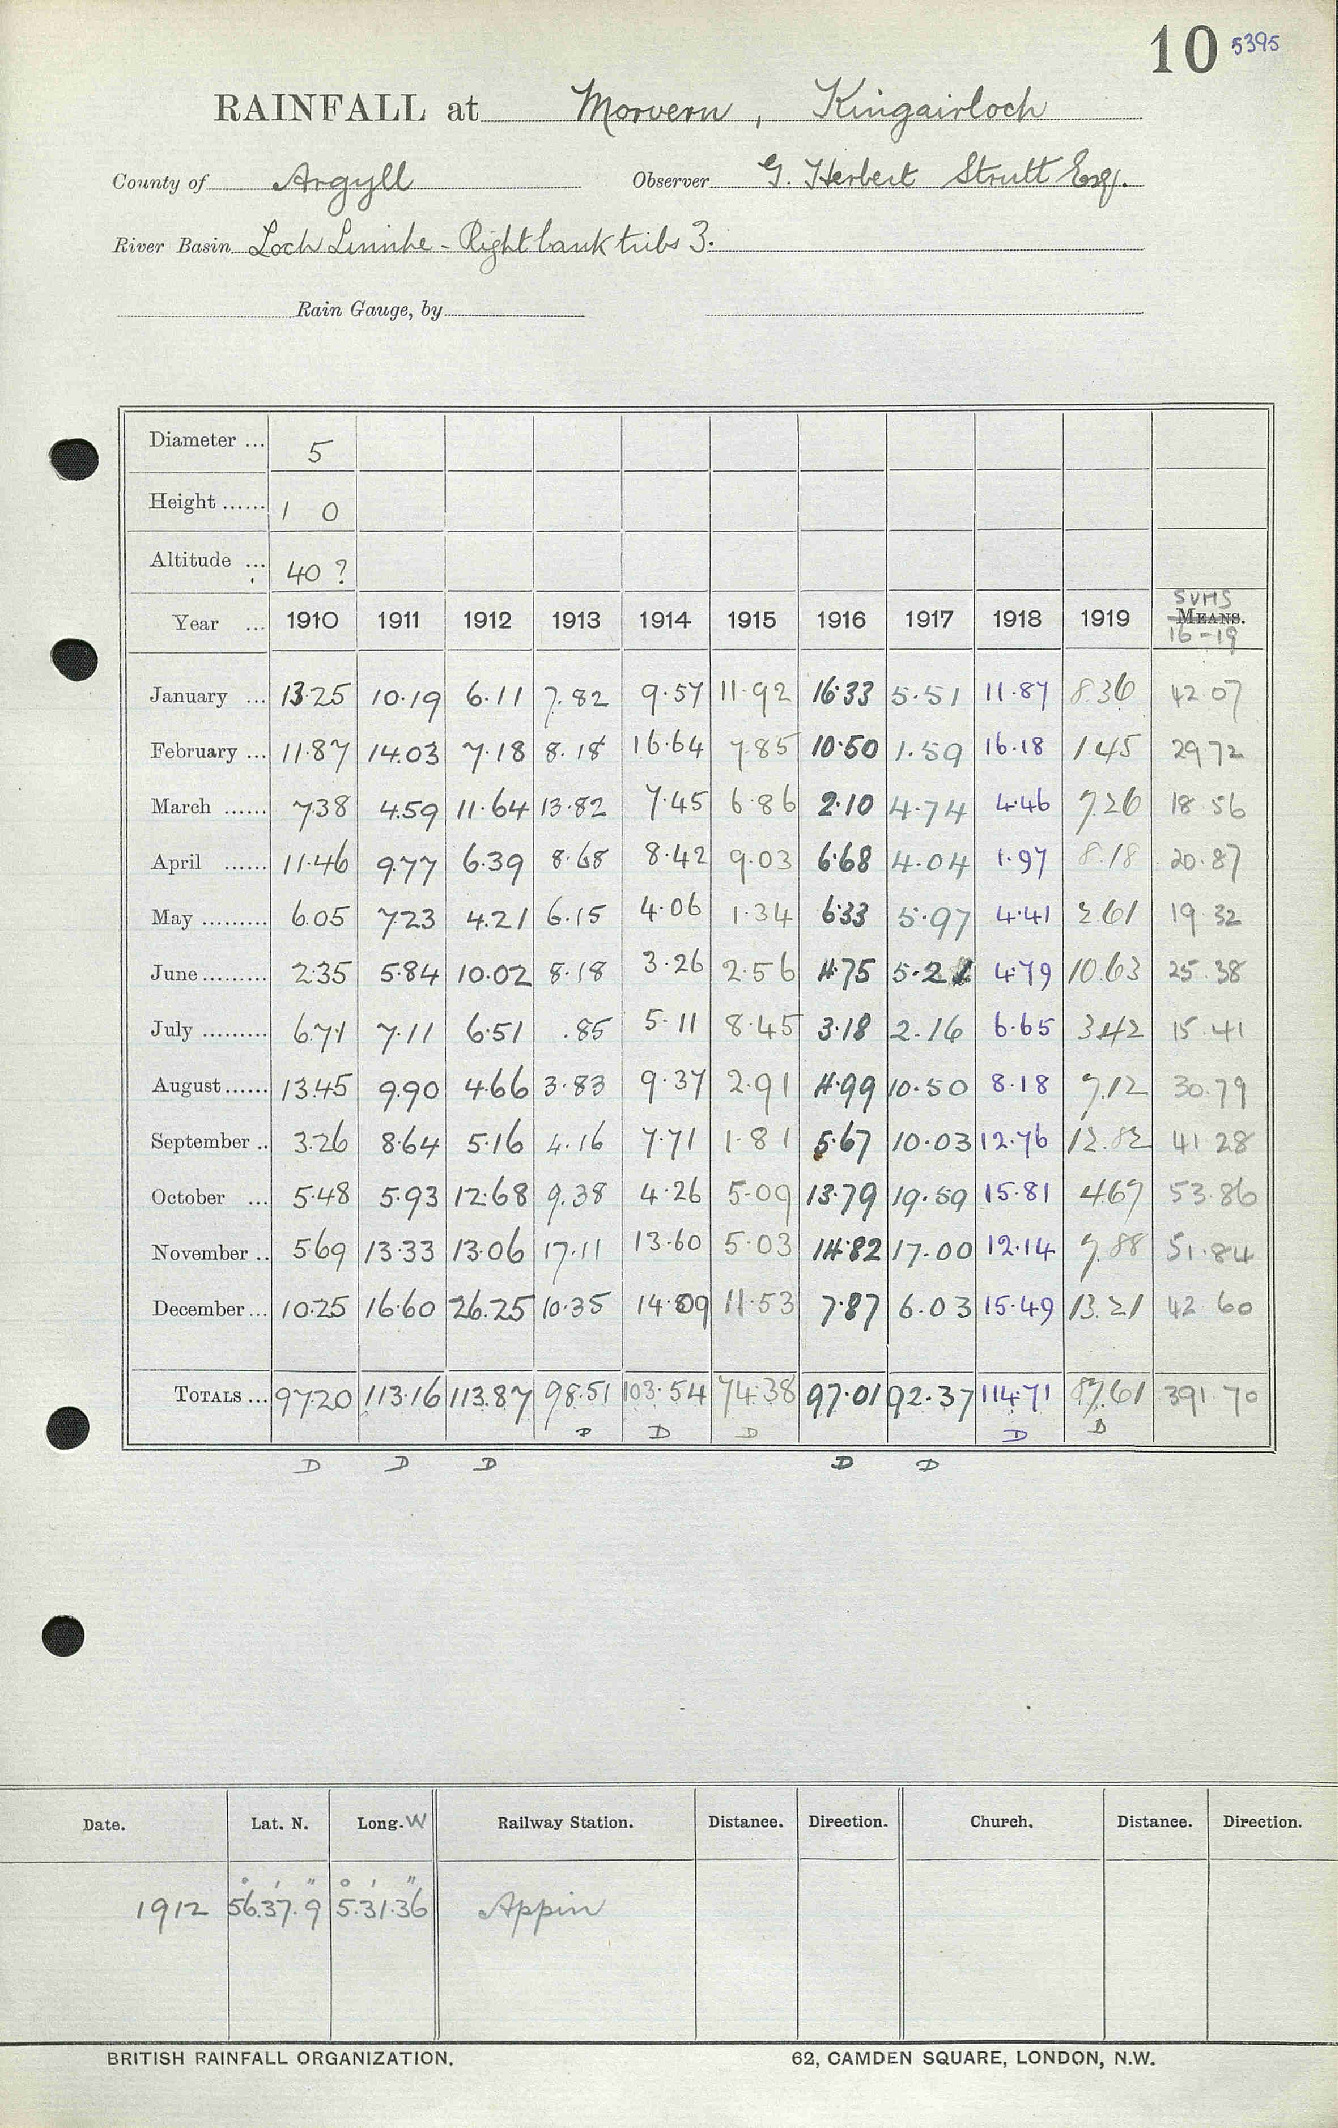 10 5395
RAINFALL at Morvern, Kingairloch
County of Argyll Observer G. Herbert Strutt Esq.
River Basin Loch Linnhe - Right bank tribs 3.
Rain Gauge, by
Diameter ... 5
Height ...... 1 0
Altitude ... 40 ?
SUMS
Year ... 1910 1911 1912 1913 1914 1915 1916 1917 1918 1919 MEANS.
16-19
January ... 13.25 10.19 6.11 7.82 9.57 11.92 16.33 5.51 11.87 8.36 42.07
February ... 11.87 14.03 7.18 8.18 16.64 7.85 10.50 1.59 16.18 1.45 29.72
March ...... 7.38 4.59 11.64 13.82 7.45 6.86 2.10 4.74 4.46 7.26 18.56
April ...... 11.46 9.77 6.39 8.68 8.42 9.03 6.68 4.04 1.97 8.18 20.87
May ......... 6.05 7.23 4.21 6.15 4.06 1.34 6.33 5.97 4.41 2.61 19.32
June ......... 2.35 5.84 10.02 8.18 3.26 2.56 4.75 5.21 4.79 10.63 25.38
July ......... 6.71 7.11 6.51 .85 5.11 8.45 3.18 2.16 6.65 3.42 15.41
August ...... 13.45 9.90 4.66 3.83 9.37 2.91 4.99 10.50 8.18 7.12 30.79
September .. 3.26 8.64 5.16 4.16 7.71 1.81 5.67 10.03 12.76 12.82 41.28
October ... 5.48 5.93 12.68 9.38 4.26 5.09 13.79 19.59 15.81 4.67 53.86
November .. 5.69 13.33 13.06 17.11 13.60 5.03 14.82 17.00 12.14 7.88 51.84
December ... 10.25 16.60 26.25 10.35 14.09 11.53 7.87 6.03 15.49 13.21 42.60
TOTALS ... 97.20 113.16 113.87 98.51 103.54 74.38 97.01 92.37 114.71 87.61 391.70
D D D D D
D D D D D
Date. Lat. N. Long. W Railway Station. Distance. Direction. Church. Distance. Direction.
° ' " ° ' "
1912 56.37.9 5.31.36 Appin
BRITISH RAINFALL ORGANIZATION. 62, CAMDEN SQUARE, LONDON, N.W.